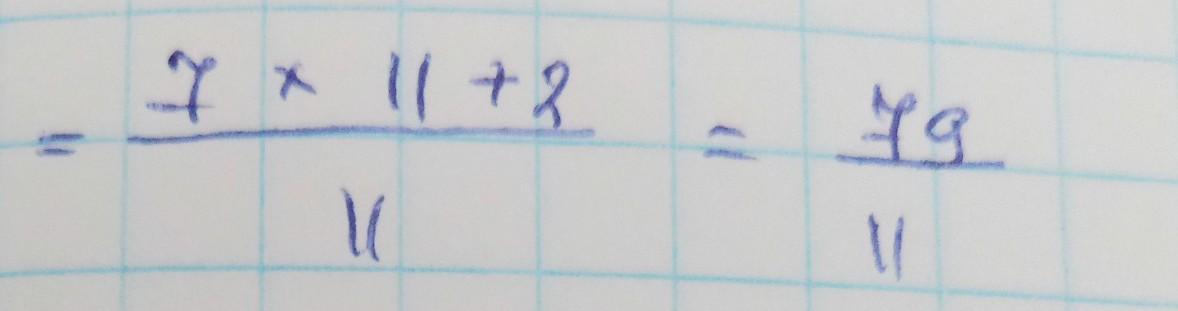 = \frac{7 × 11 + 2}{11} = \frac{79}{11}